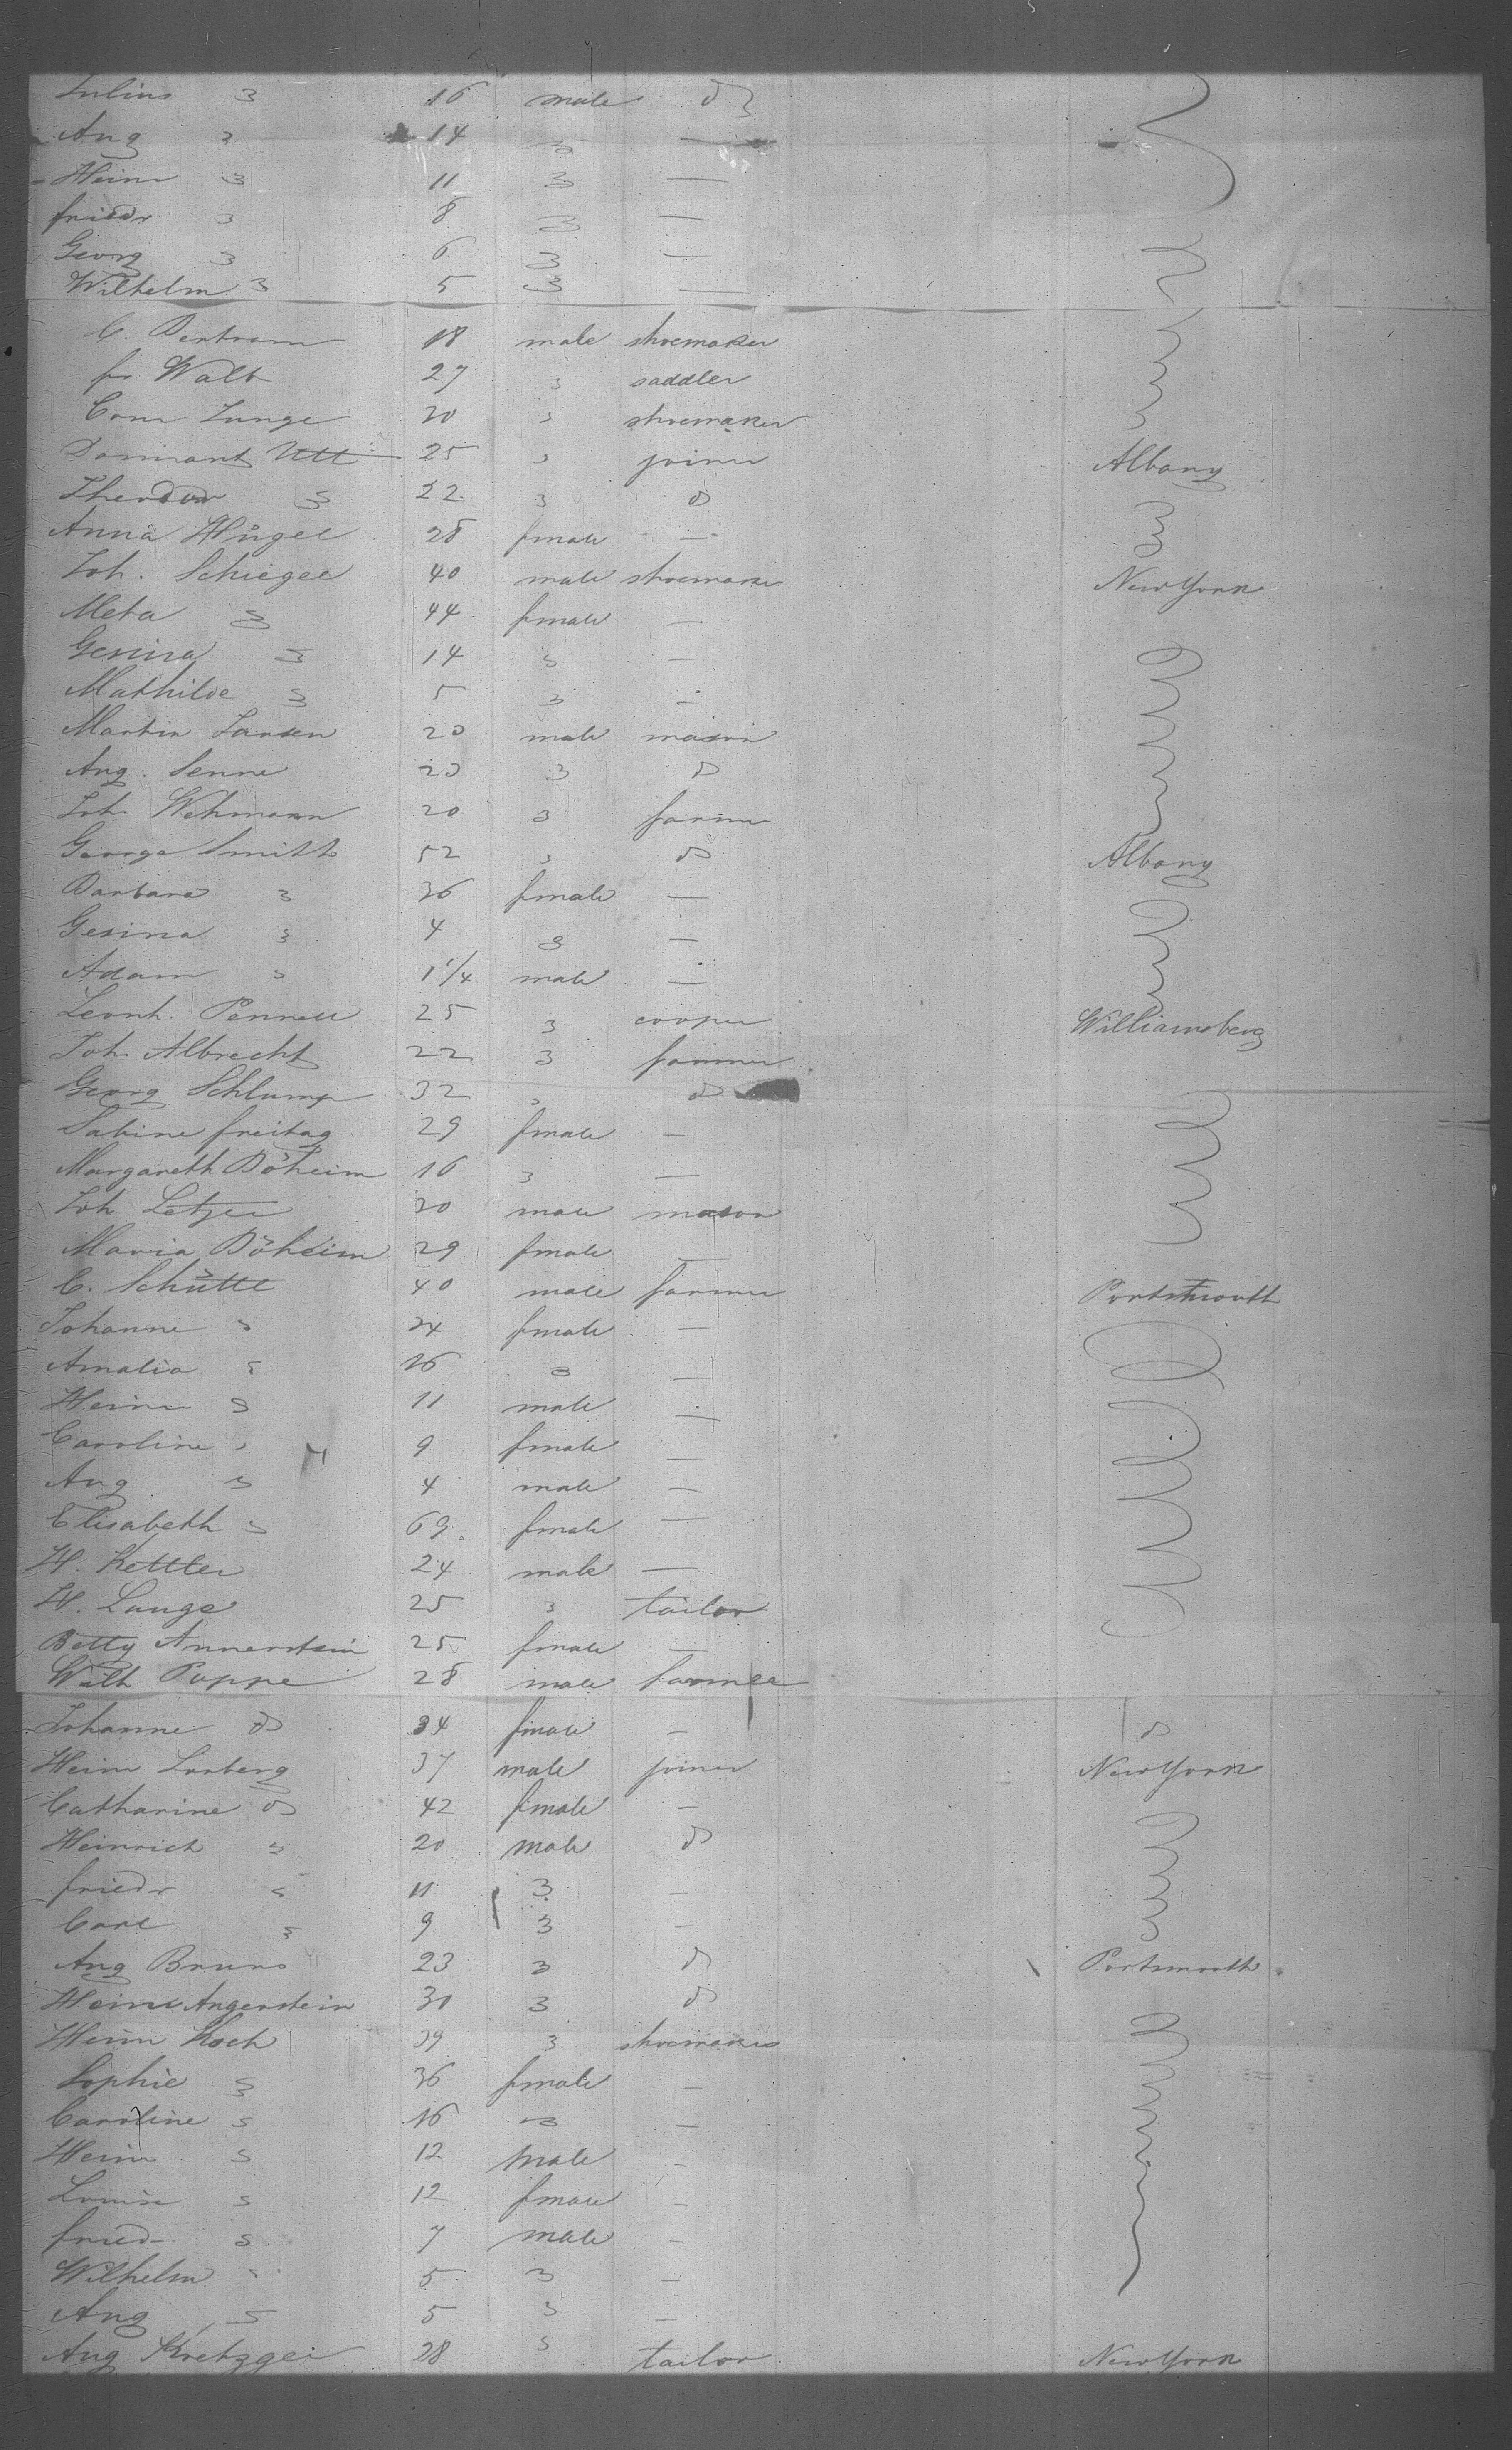 Julius 3 16 male do 3
Aug 3 14 3 —
Heinr 3 11 3 —
friedr 3 8 3 —
Georg 3 6 3 —
Wilhelm 3 5 3 —
C. Bertram 18 male shoemaker
fr Walb 27 3 saddler
Conr Junge 20 3 shoemaker
Utt 25 3 joiner Albany
Theodor 3 22 3 do
Anna Hügel 28 fmale —
Joh. Schiegel 40 male shoemaker New York
Meta 3 44 fmale —
Gesina 3 14 3 —
Mathilde 3 5 3 —
Martin Jansen 20 male mason
Aug. Senne 23 3 do
Joh. Wehmann 20 3 farmer
George Smitt 52 3 do Albany
Barbara 3 36 fmale —
Gesina 3 4 3 —
Adam 3 1 1/4 male —
Leonh. Pennell 25 3 cooper Williamsberg
Joh Albrecht 22 3 farmer
Georg Schlump 32 3 do
Sabine freitag 29 fmale —
Margareth Böheim 16 3 —
Joh Letzer 30 male mason
Maria Böheim 29 fmale —
C. Schütte 40 male farmer Portsmouth
Johanne 3 34 fmale —
Amalia 3 16 3 —
Heinr 3 11 male —
Caroline 3 9 fmale —
Aug 3 4 male —
Elisabeth 3 69 fmale —
H. Kettler 24 male —
H. Lange 25 3 tailor
Betty Annerstein 25 fmale —
Wilh Poppe 28 male farmer
Johanne do 34 fmale — do
Heinr Lorberg 37 male joiner New York
Catharine do 42 fmale —
Heinrich 3 20 male do
friedr 3 11 3 —
Carl 3 9 3 —
Aug Bruns 23 3 do Portsmouth
Heinr Angerstein 30 3 do
Heinr Koch 39 3 shoemaker
Sophie 3 36 fmale —
Caroline 3 16 3 —
Heinr 3 12 male —
Louise 3 12 fmale —
fried 3 7 male —
Wilhelm 3 5 3 —
Aug 3 5 3 —
Aug Kretzger 28 3 tailor New York